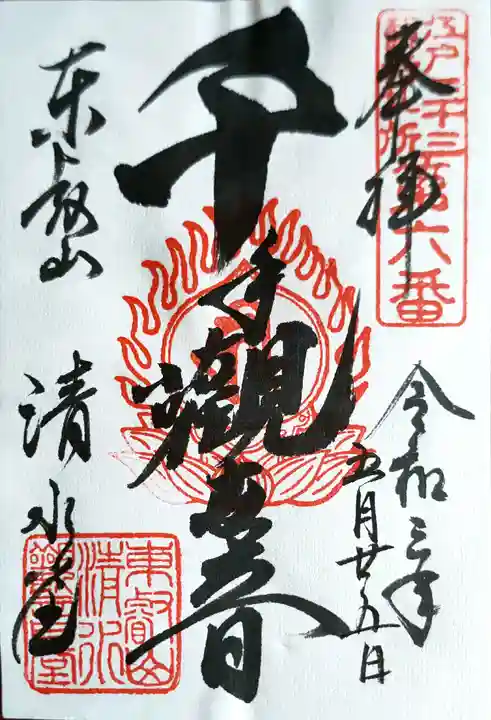 奉拝
江戸三十三所第六番
令和三年
五月廿五日
千手観世音
東叡山
清水堂
東叡山
清水
観音堂